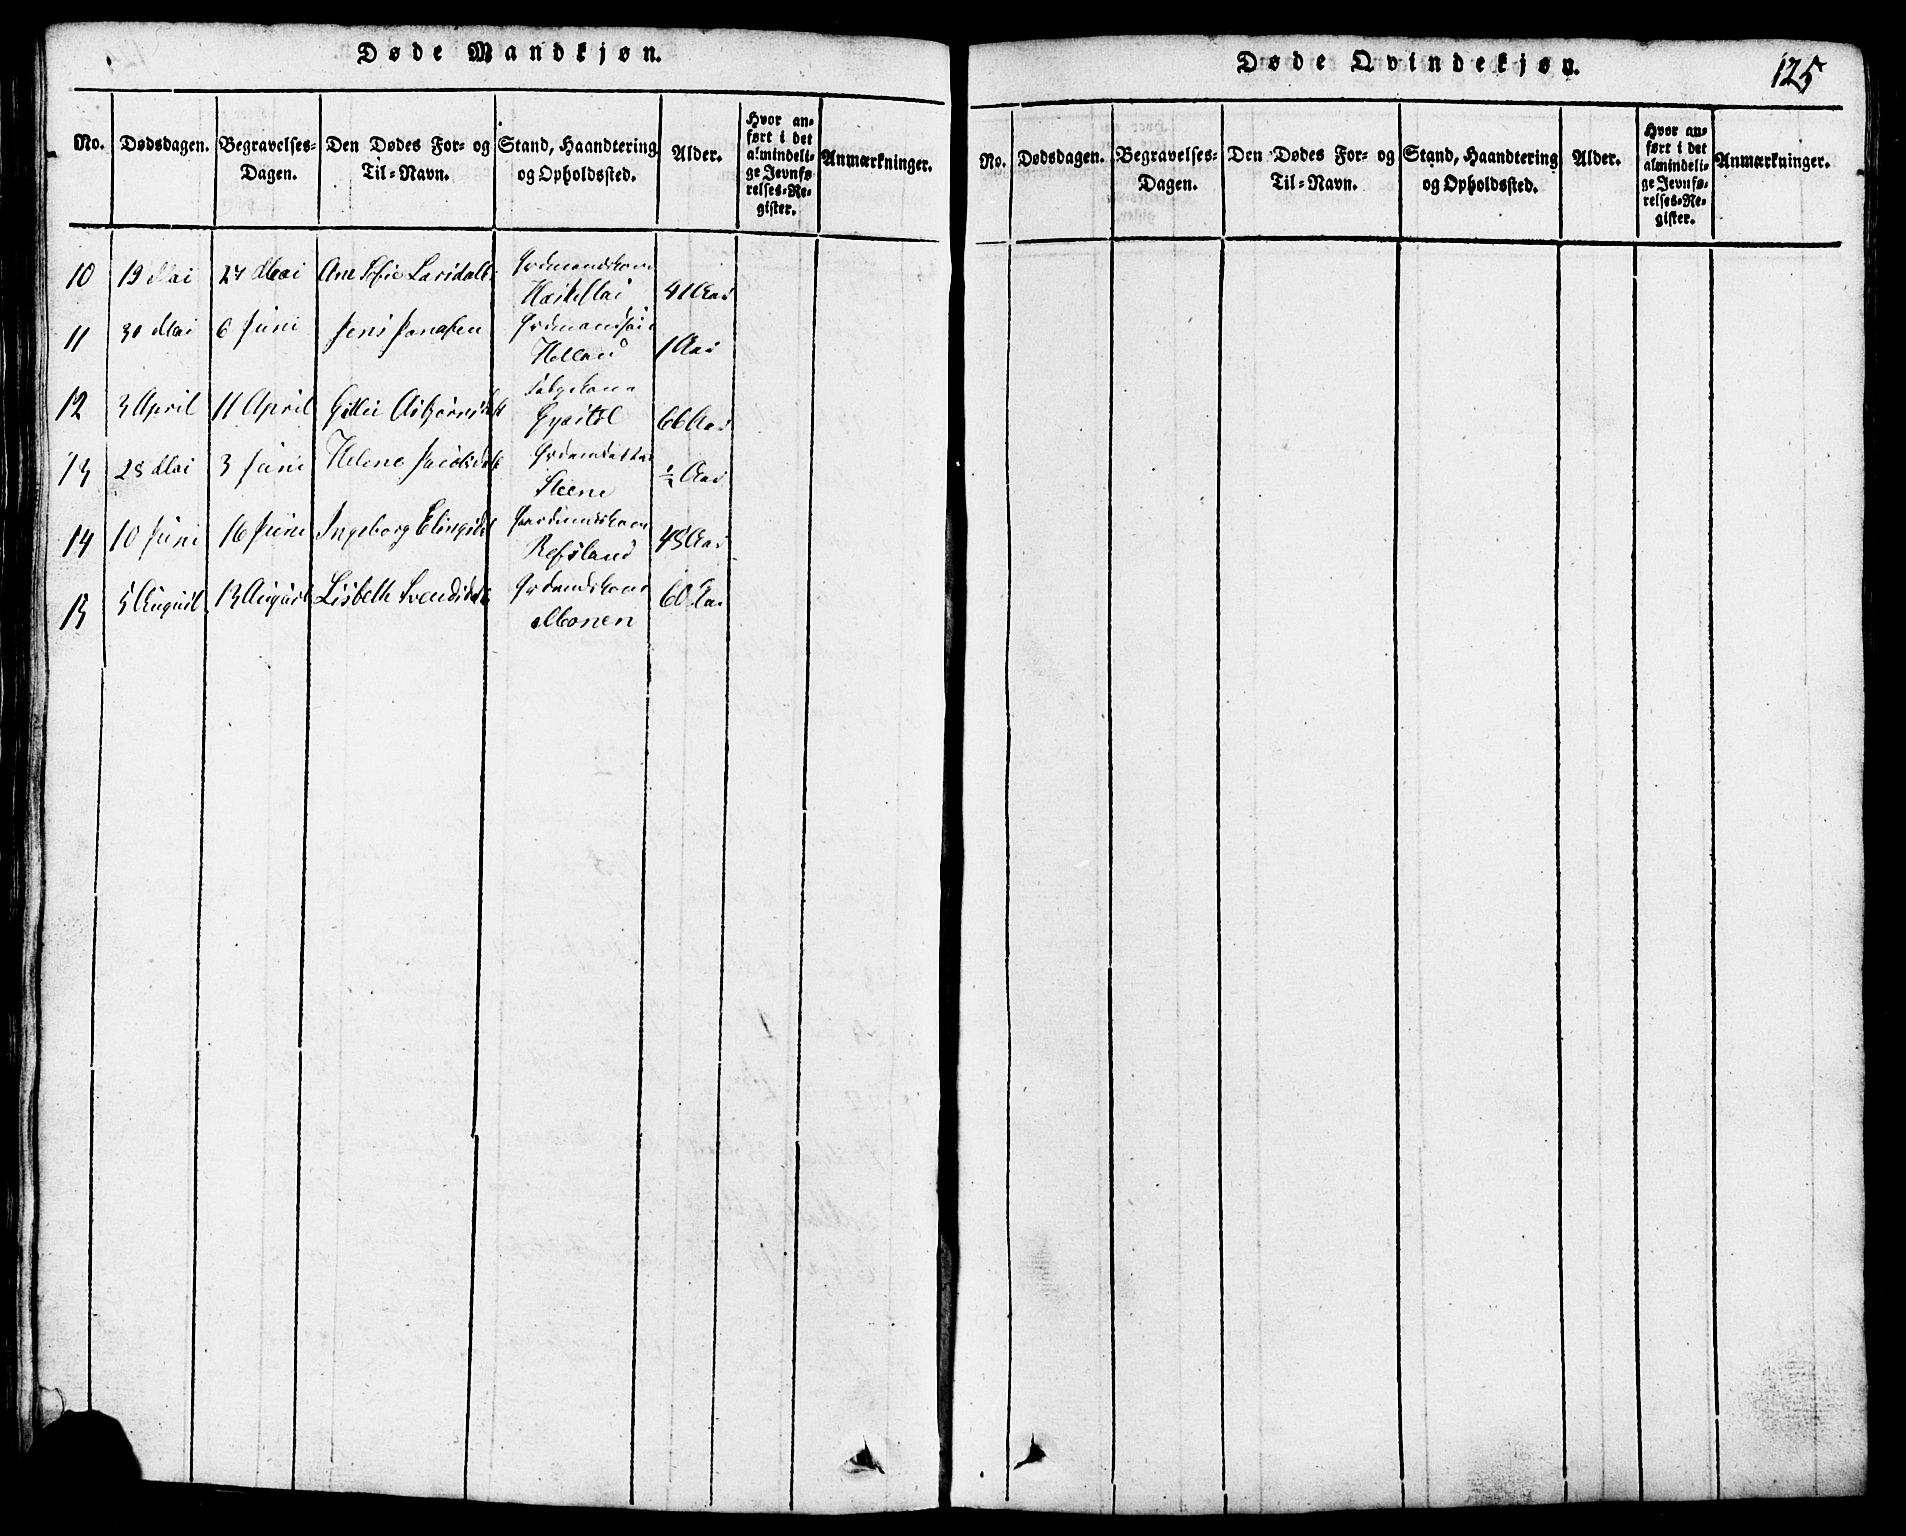 Døde Mandkjøn.
No. Dødsdagen. Begravelses-Dagen. Den Dødes For- og Til-Navn. Stand, Haandtering og Opholdssted. Alder. Hvor anført i det almindelige Jevnførelses-Register. Anmærkninger.
10 19 Mai 27 Mai Ane Sofie Larsdatt.
41 Aar
11 30 Mai 6 Juni Jens Jonassen
Helland 1 Aar
12 3 April 11 April Asbjørnsdatt
66 Aar
13 28 Mai 3 Juni Helene Jacobsdatt
Steene ½ Aar
14 10 Juni 16 Juni Ingeborg Elingsdt
Refsland 48 Aar
15 5 August 13 August Lisbeth Svendsdatt 60 Aar
Monen
Døde Qvindekjøn.
125
No. Dødsdagen. Begravelses-Dagen. Den Dødes For- og Til-Navn. Stand, Haandtering og Opholdssted. Alder. Hvor anført i det almindelige Jevnførelses-Register. Anmærkninger.